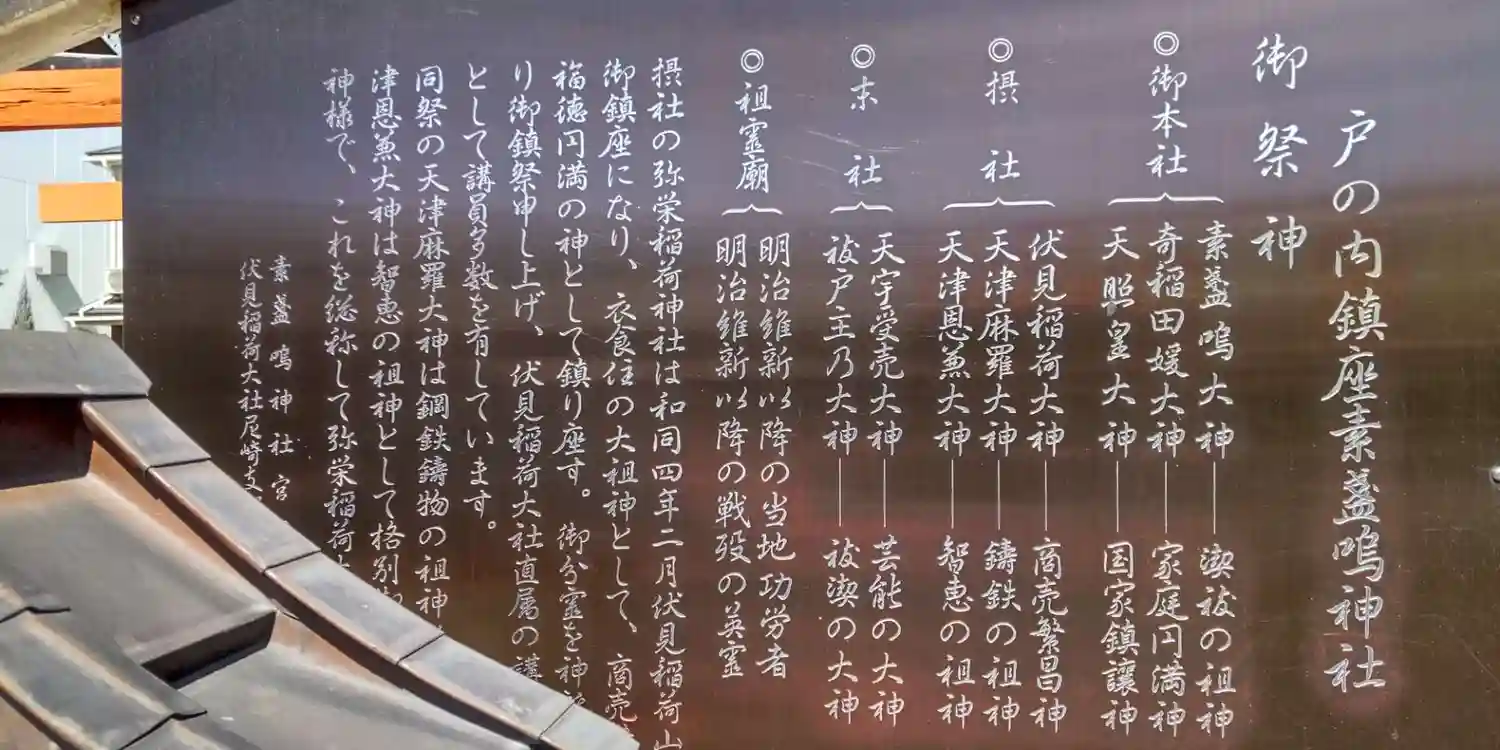 戸の内鎮座素盞嗚神社
御祭神
◎御本社
素盞嗚大神―禊祓の祖神
奇稲田媛大神―家庭円満神
天照皇大神―国家鎮護神
◎摂社
伏見稲荷大神―商売繁昌神
天津麻羅大神―鑄鉄の祖神
天津恩兼大神―智恵の祖神
◎末社
天宇受売大神―芸能の大神
祓戸主乃大神―祓禊の大神
◎祖霊廟
明治維新以降の当地功労者
明治維新以降の戦殁の英霊
摂社の弥栄稲荷神社は和同四年二月伏見稲荷山
御鎮座になり、衣食住の大祖神として、商売
福徳円満の神として鎮り座す。御分霊を神
り御鎮祭申し上げ、伏見稲荷大社直属の講
として講員多数を有しています。
同祭の天津麻羅大神は鋼鉄鑄物の祖神
津恩兼大神は智恵の祖神として格別
神様で、これを総称して弥栄稲荷
素盞嗚神社宮
伏見稲荷大社尼崎支